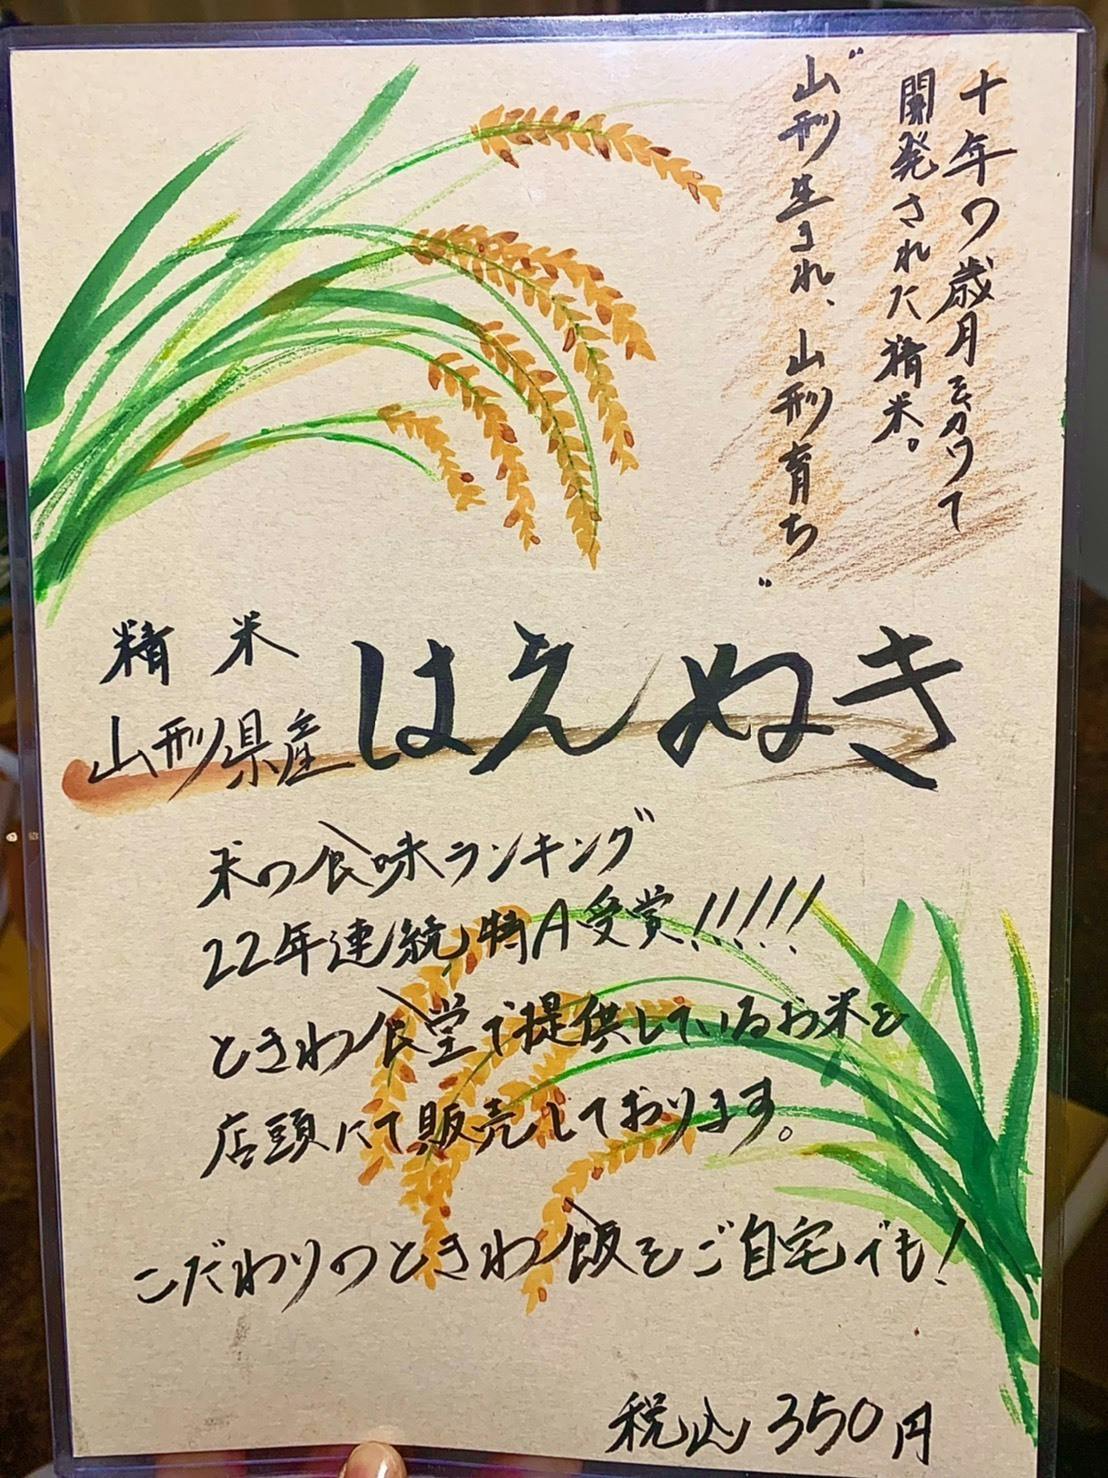 十年の歳月をかけて
開発された精米。
“山形生まれ、山形育ち”
精米
山形県産 はえぬき
米の食味ランキング
22年連続特A受賞!!!!!
ときわ食堂で提供しているお米を
店頭にて販売しております。
こだわりのときわ飯をご自宅でも!
税込350円